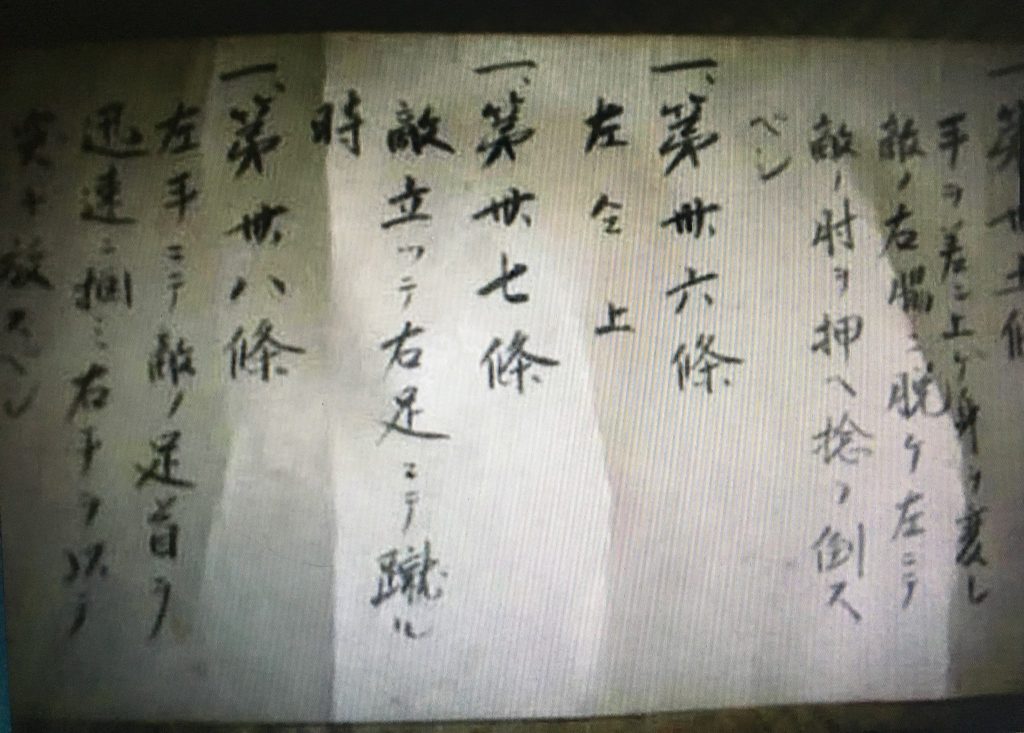 一、第卅五條
手ヲ差シ上ゲ身ヲ
敵ノ右脇ニ脱ケ左ニテ
敵ノ肘ヲ押ヘ捻リ倒ス
ベシ
一、第卅六條
左仝上
一、第卅七條
敵立ッテ右足ニテ蹴ル
時
一、第卅八條
左手ニテ敵ノ足首ヲ
迅速ニ掴ミ右手ヲ以テ
突キ放スベシ